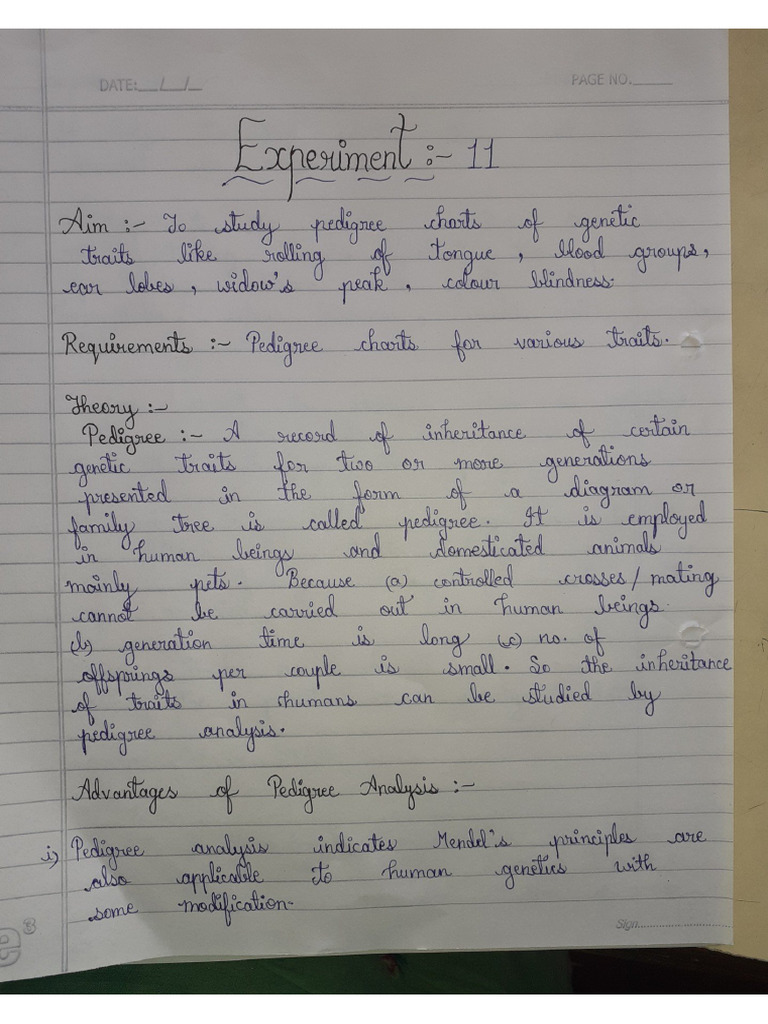 DATE:__/__/__
PAGE NO.______
Experiment :- 11
Aim :- To study pedigree charts of genetic
traits like rolling of tongue , blood groups,
ear lobes , widow's peak , colour blindness.
Requirements :- Pedigree charts for various traits.
Theory :-
Pedigree :- A record of inheritance of certain
genetic traits for two or more generations
presented in the form of a diagram or
family tree is called pedigree. It is employed
in human beings and domesticated animals
mainly pets. Because (a) controlled crosses/mating
cannot be carried out in human beings.
(b) generation time is long (c) no. of
offsprings per couple is small. So the inheritance
of traits in humans can be studied by
pedigree analysis.
Advantages of Pedigree Analysis :-
i) Pedigree analysis indicates Mendel's principles are
also applicable to human genetics with
some modification-
Sign..........................